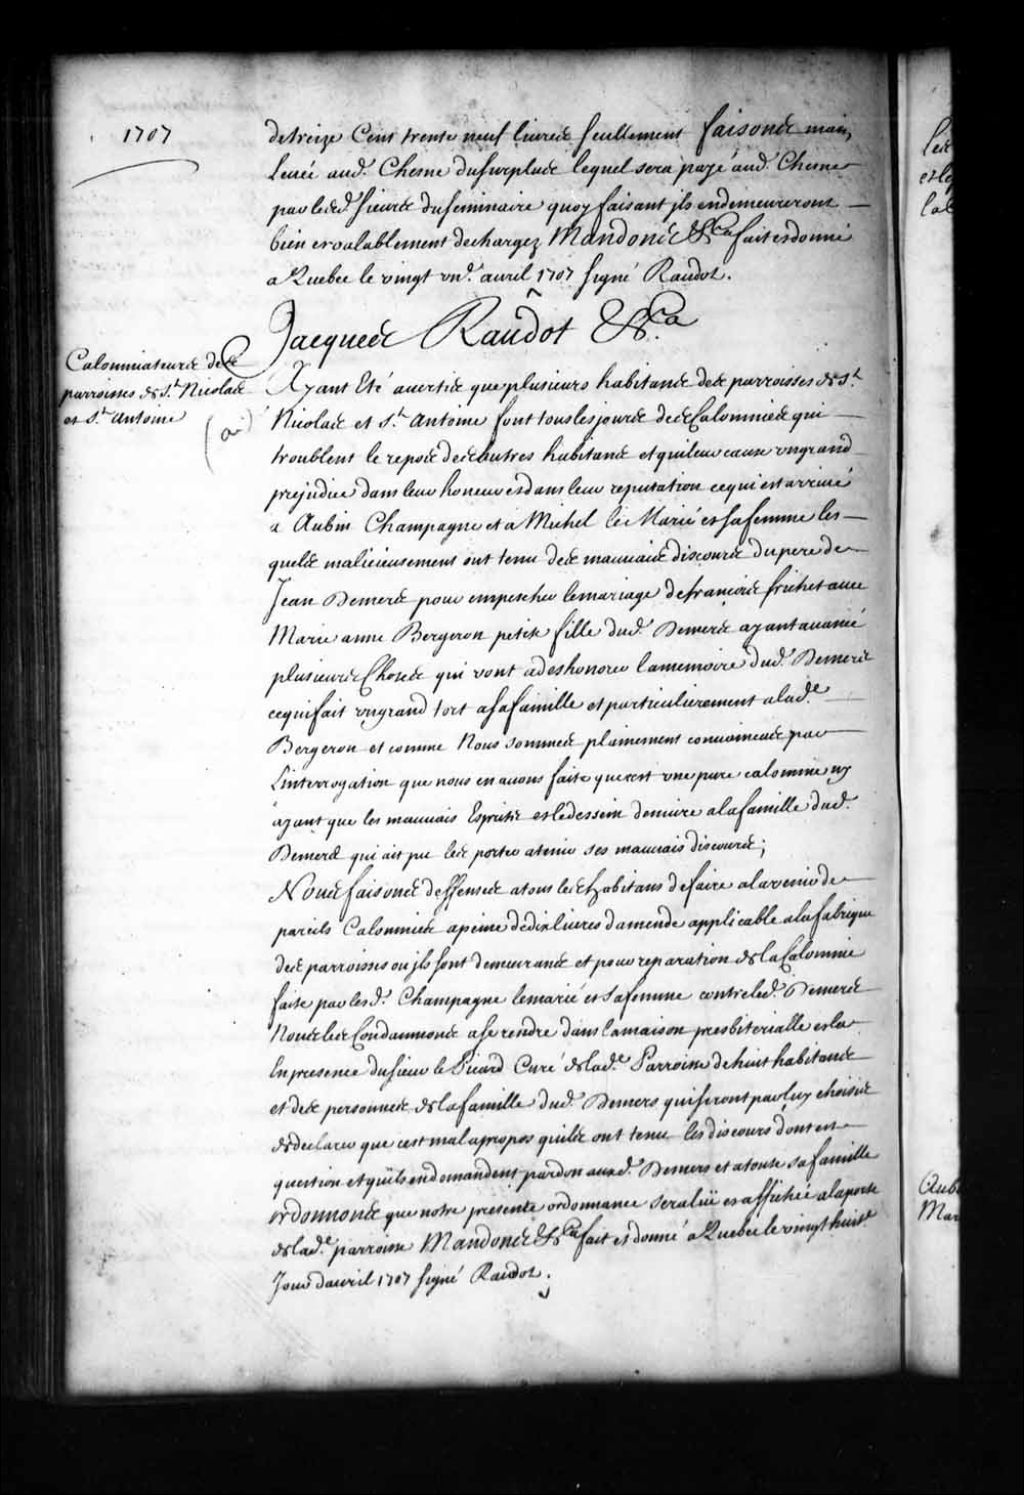 1707
de treize Cens trente neuf livres seullement faisons main
Levée aud. Chesne du surplus lequel sera payé aud. Chesne
par lesd. sieurs du seminaire quoy faisant jls en demeureront
bien et valablement dechargez Mandons &ca fait et donné
a Quebec le vingt un.e avril 1707 signé Raudot.
Jacques Raudot &ca
Calomniateurs des
parroisses de St. Nicolas
et St. Antoine
(a)
Ayant Eté avertis que plusieurs habitans des parroisses de St.
Nicolas et St. Antoine font tous les jours des Calomnies qui
troublent le repos des autres habitans et qui leur cause un grand
prejudice dans leur honneur et dans leur reputation ce qui est arrivé
a Aubin Champagne et a Michel le Marié et sa femme les
quels malicieusement ont tenu des mauvais discours du pere de
Jean Demers pour empescher le mariage de françois frichet avec
Marie anne Bergeron petite fille dud. Demers ayant avancé
plusieurs Choses qui vont a deshonorer la memoire dud. Demers
ce qui fait un grand tort a sa famille et particulierement a lad.e
Bergeron et comme Nous sommes plainement convaincus par
L'interrogation que nous en avons faite que c'est une pure calomnie ny
ayant que les mauvais Esprits et le dessein de nuire a la famille dud.
Demers qui ait pu les porter a tenir ses mauvais discours;
Nous faisons deffenses a tous les habitans de faire a lavenir de
pareils Calomnies a peine de dix livres damende applicable a la fabrique
des parroisses ou jls sont demeurans et pour reparation de la Calomnie
faite par lesd. Champagne le marié et sa femme contre led. Demers
Nous les Condamnons a se rendre dans la maison presbiterialle et la
En presence du sieur le Picard Curé de lad.e Parroisse de huit habitans
et des personnes de la famille dud. Demers qui seront par luy choisis
de declarer que cest mal apropos quils ont tenu les discours dont est
question et quils en demandent pardon aud. Demers et a toute sa famille
ordonnons que notre presente ordonnance sera lüe et affichée a la porte
de lad.e parroisse Mandons &ca fait et donné a Quebec le vingt huit.e
Jour davril 1707 signé Raudot.